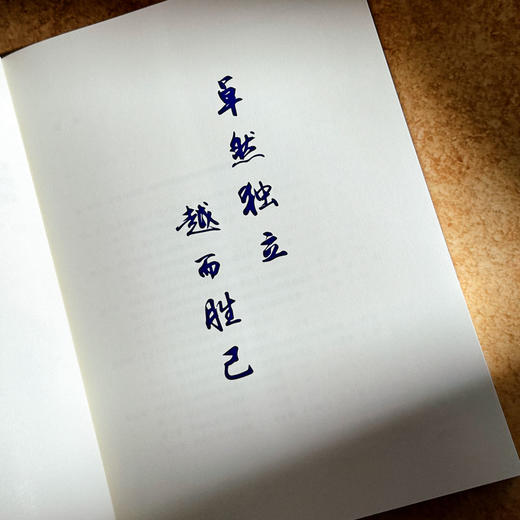 卓然独立
越而胜己